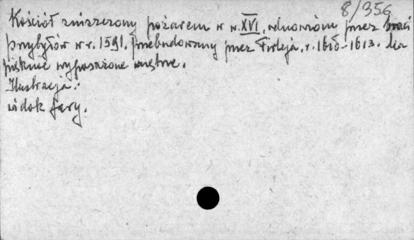 8/356
Kościół zniszczony pożarem w w. XVI, odnowiony przez braci
przybyłów w r. 1591. Przebudowany przez Firleja, r. 1610-1613. Ma
piękne wyposażone wnętrze.
Ilustracja:
widok fary.